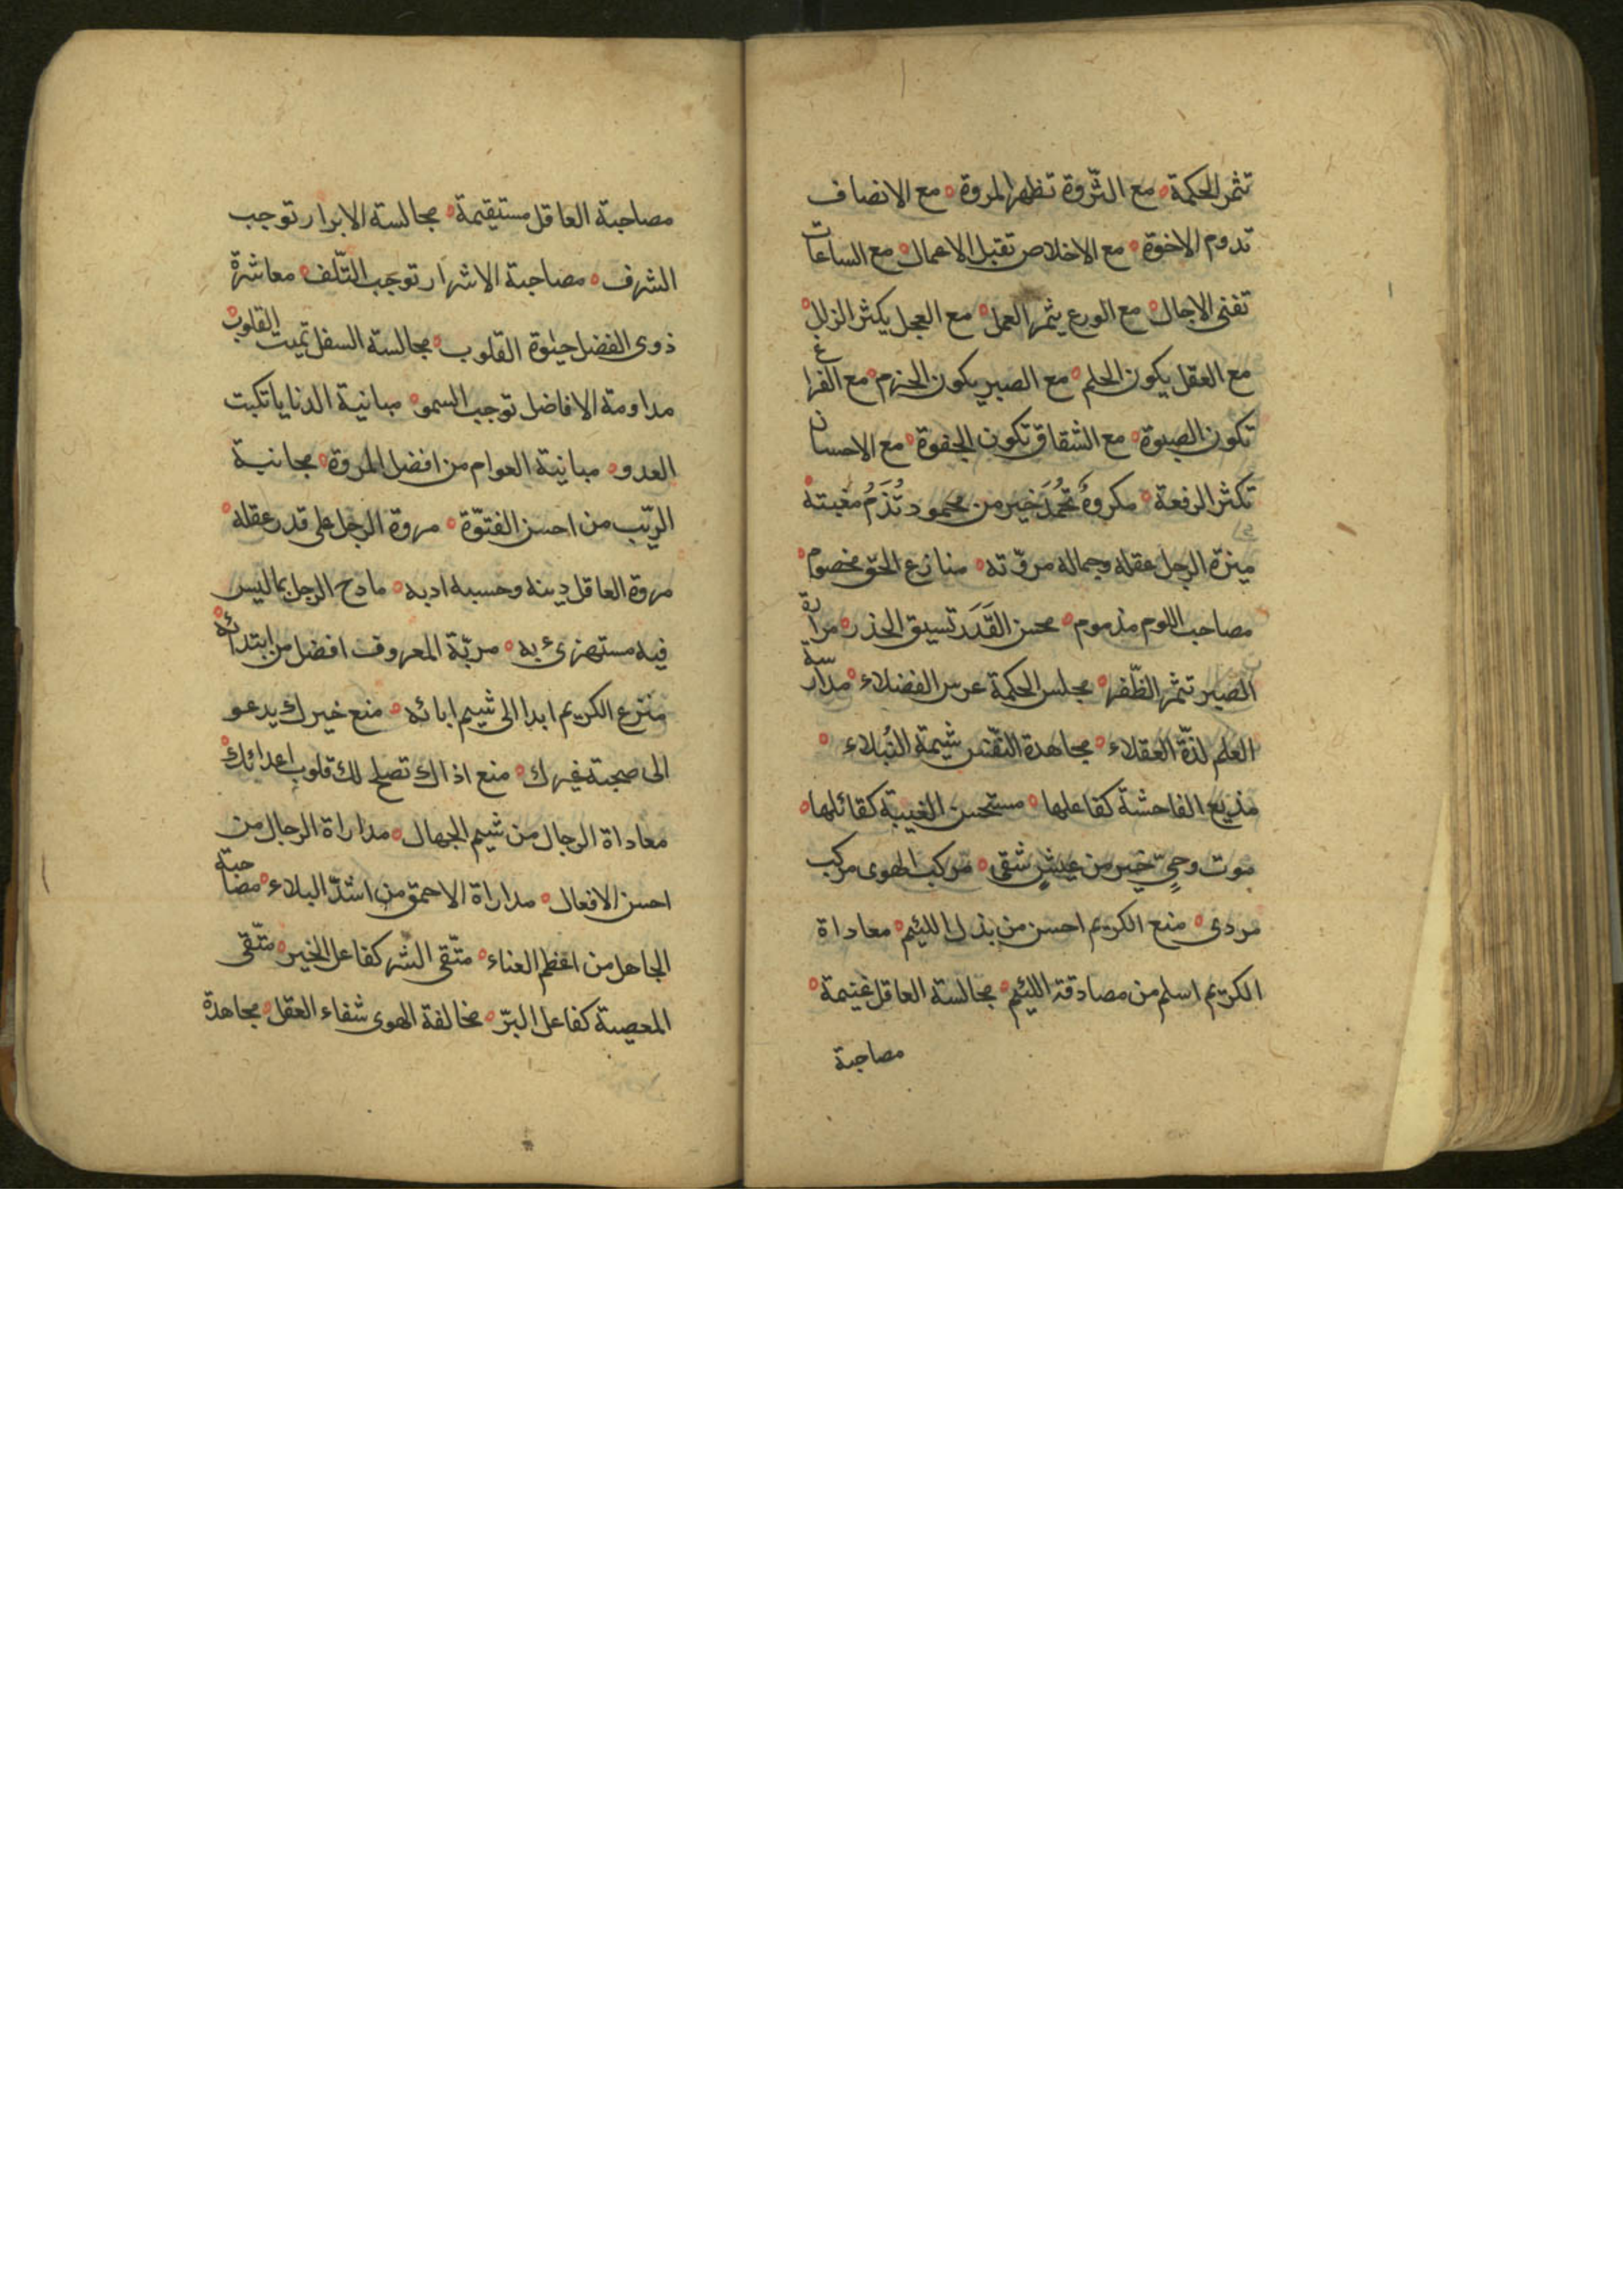 تثمر الحكمة ه مع الثّروة تظهر المروة ه مع الانصاف
تدوم الاخوة ه مع الاخلاص تقبل الاعمال ه مع الساعات
تفنى الاجال ه مع الورع يثمر العمل ه مع العجل يكثر الزلل ه
مع العقل يكون الحلم ه مع الصبر يكون الحزم ه مع الفراغ
تكون الصبوة ه مع الشقاق تكون الجفوة ه مع الاحسان
تكثر الرفعة ه مكروهٌ تُحْمَدُ خير من محمود تُذَمُّ مغبته ه
ميزة الرجل عقله وجماله مروّته ه منازع الحقّ مخصوم ه
مصاحب اللوم مذموم ه محن القَدَر تسبق الحذر ه مرارة
الصبر تثمر الظّفر ه مجلس الحكمة غرس الفضلاء ه مدارسة
العلم لذّة العقلاء ه مجاهدة النّفس شيمة النُبلاء ه
مذيع الفاحشة كفاعلها ه مستحسن الغيبة كقائلها ه
موت وحيّ خير من عيشٍ شقي ه مركب الهوى مركب
مردى ه منع الكريم احسن من بذل اللئيم ه معاداة
الكريم اسلم من مصادقة اللئيم ه مجالسة العاقل غنيمة ه
مصاحبة
مصاحبة العاقل مستقيمة ه مجالسة الابرار توجب
الشرف ه مصاحبة الاشرار توجب التّلف ه معاشرة
ذوى الفضل حيٰوة القلوب ه مجالسة السفل تميت القلوب ه
مداومة الافاضل توجب السمو ه مباينة الدنايا تكبت
العدو ه مباينة العوام من افضل المروة ه مجانبة
الريب من احسن الفتوّة ه مروة الرجل على قدر عقله ه
مروة العاقل دينه وحسبه ادبه ه مادح الرجل بما ليس
فيه مستهزئ به ه مربّة المعروف افضل من ابتدائه ه
منزع الكريم ابدا الى شيم ابائه ه منع خيرك يدعو
الى صحبة غيرك ه منع اذاك تصلح لك قلوب اعدائك ه
معاداة الرجال من شيم الجهال ه مداراة الرجال من
احسن الافعال ه مداراة الاحمق من اشدّ البلاء ه مصاحبة
الجاهل من اعظم العناء ه متّقى الشر كفاعل الخير ه متّقى
المعصية كفاعل البرّ ه مخالفة الهوى شفاء العقل ه مجاهدة